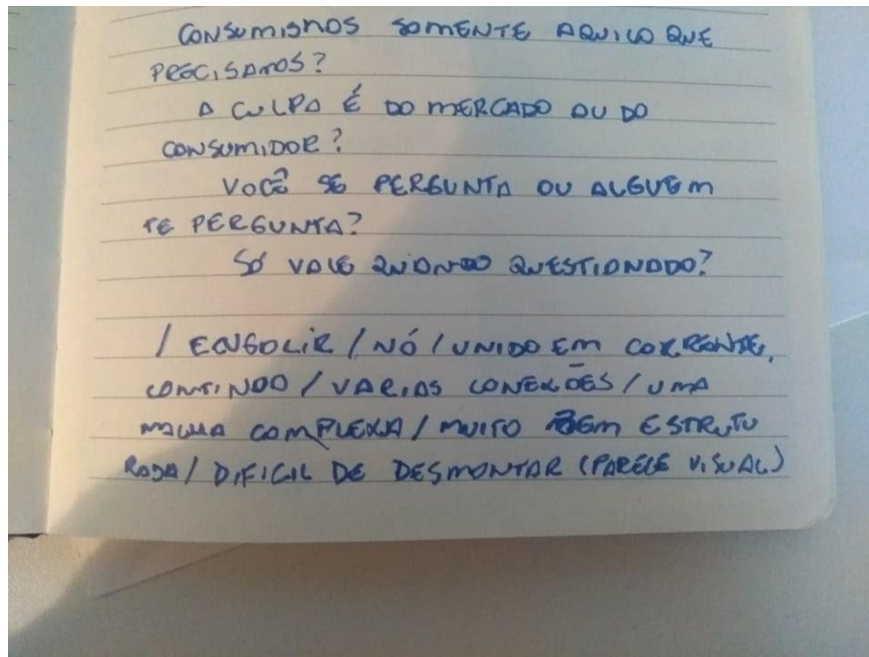 CONSUMISMOS SOMENTE AQUILO QUE
PRECISAMOS?
A CULPA É DO MERCADO OU DO
CONSUMIDOR?
VOCÊ SE PERGUNTA OU ALGUEM
TE PERGUNTA?
SÓ VALE QUANDO QUESTIONADO?
/ ENGOLIR / NÓ / UNIDO EM CORRENTE,
CONTINDO / VARIAS CONEXÕES / UMA
MALHA COMPLEXA / MUITO BEM ESTRUTU
RADA / DIFICIL DE DESMONTAR (PARELE VISUAL)